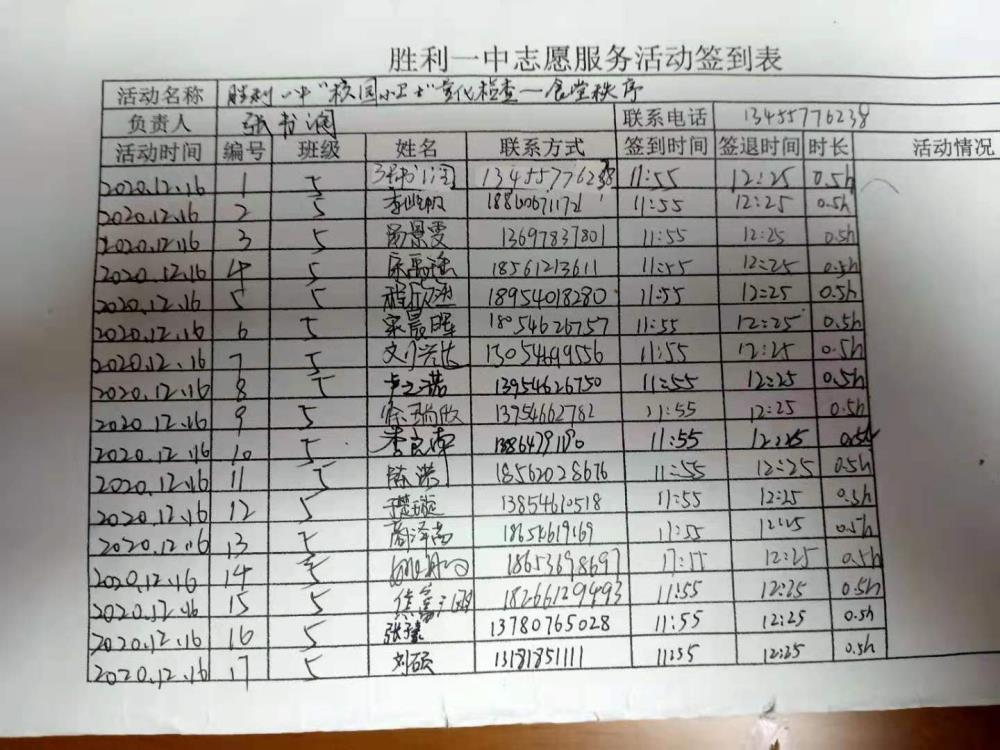 胜利一中志愿服务活动签到表
活动名称 胜利一中"校园小卫士"常化检查—食堂秩序
负责人 张书润 联系电话 13455776238
活动时间 编号 班级 姓名 联系方式 签到时间 签退时间 时长 活动情况
2020.12.16 1 5 张书润 13455776238 11:55 12:25 0.5h
2020.12.16 2 5 11:55 12:25 0.5h
2020.12.16 3 5 汤景雯 13697837801 11:55 12:25 0.5h
2020.12.16 4 5 18561213611 11:55 12:25 0.5h
2020.12.16 5 5 18954018280 11:55 12:25 0.5h
2020.12.16 6 5 宋晨晖 18054626757 11:55 12:25 0.5h
2020.12.16 7 5 13054699556 11:55 12:25 0.5h
2020.12.16 8 5 卢之诺 13954626750 11:55 12:25 0.5h
2020.12.16 9 5 13954662782 11:55 12:25 0.5h
2020.12.16 10 5 李良南 11:55 12:25 0.5h
2020.12.16 11 5 陈洪 18562028676 11:55 12:25 0.5h
2020.12.16 12 5 13854610518 11:55 12:25 0.5h
2020.12.16 13 5 商泽尚 18654619169 11:55 12:25 0.5h
2020.12.16 14 5 18653698697 11:55 12:25 0.5h
2020.12.16 15 5 18266129493 11:55 12:25 0.5h
2020.12.16 16 5 13780765028 11:55 12:25 0.5h
2020.12.16 17 5 刘硕 13181851111 11:55 12:25 0.5h